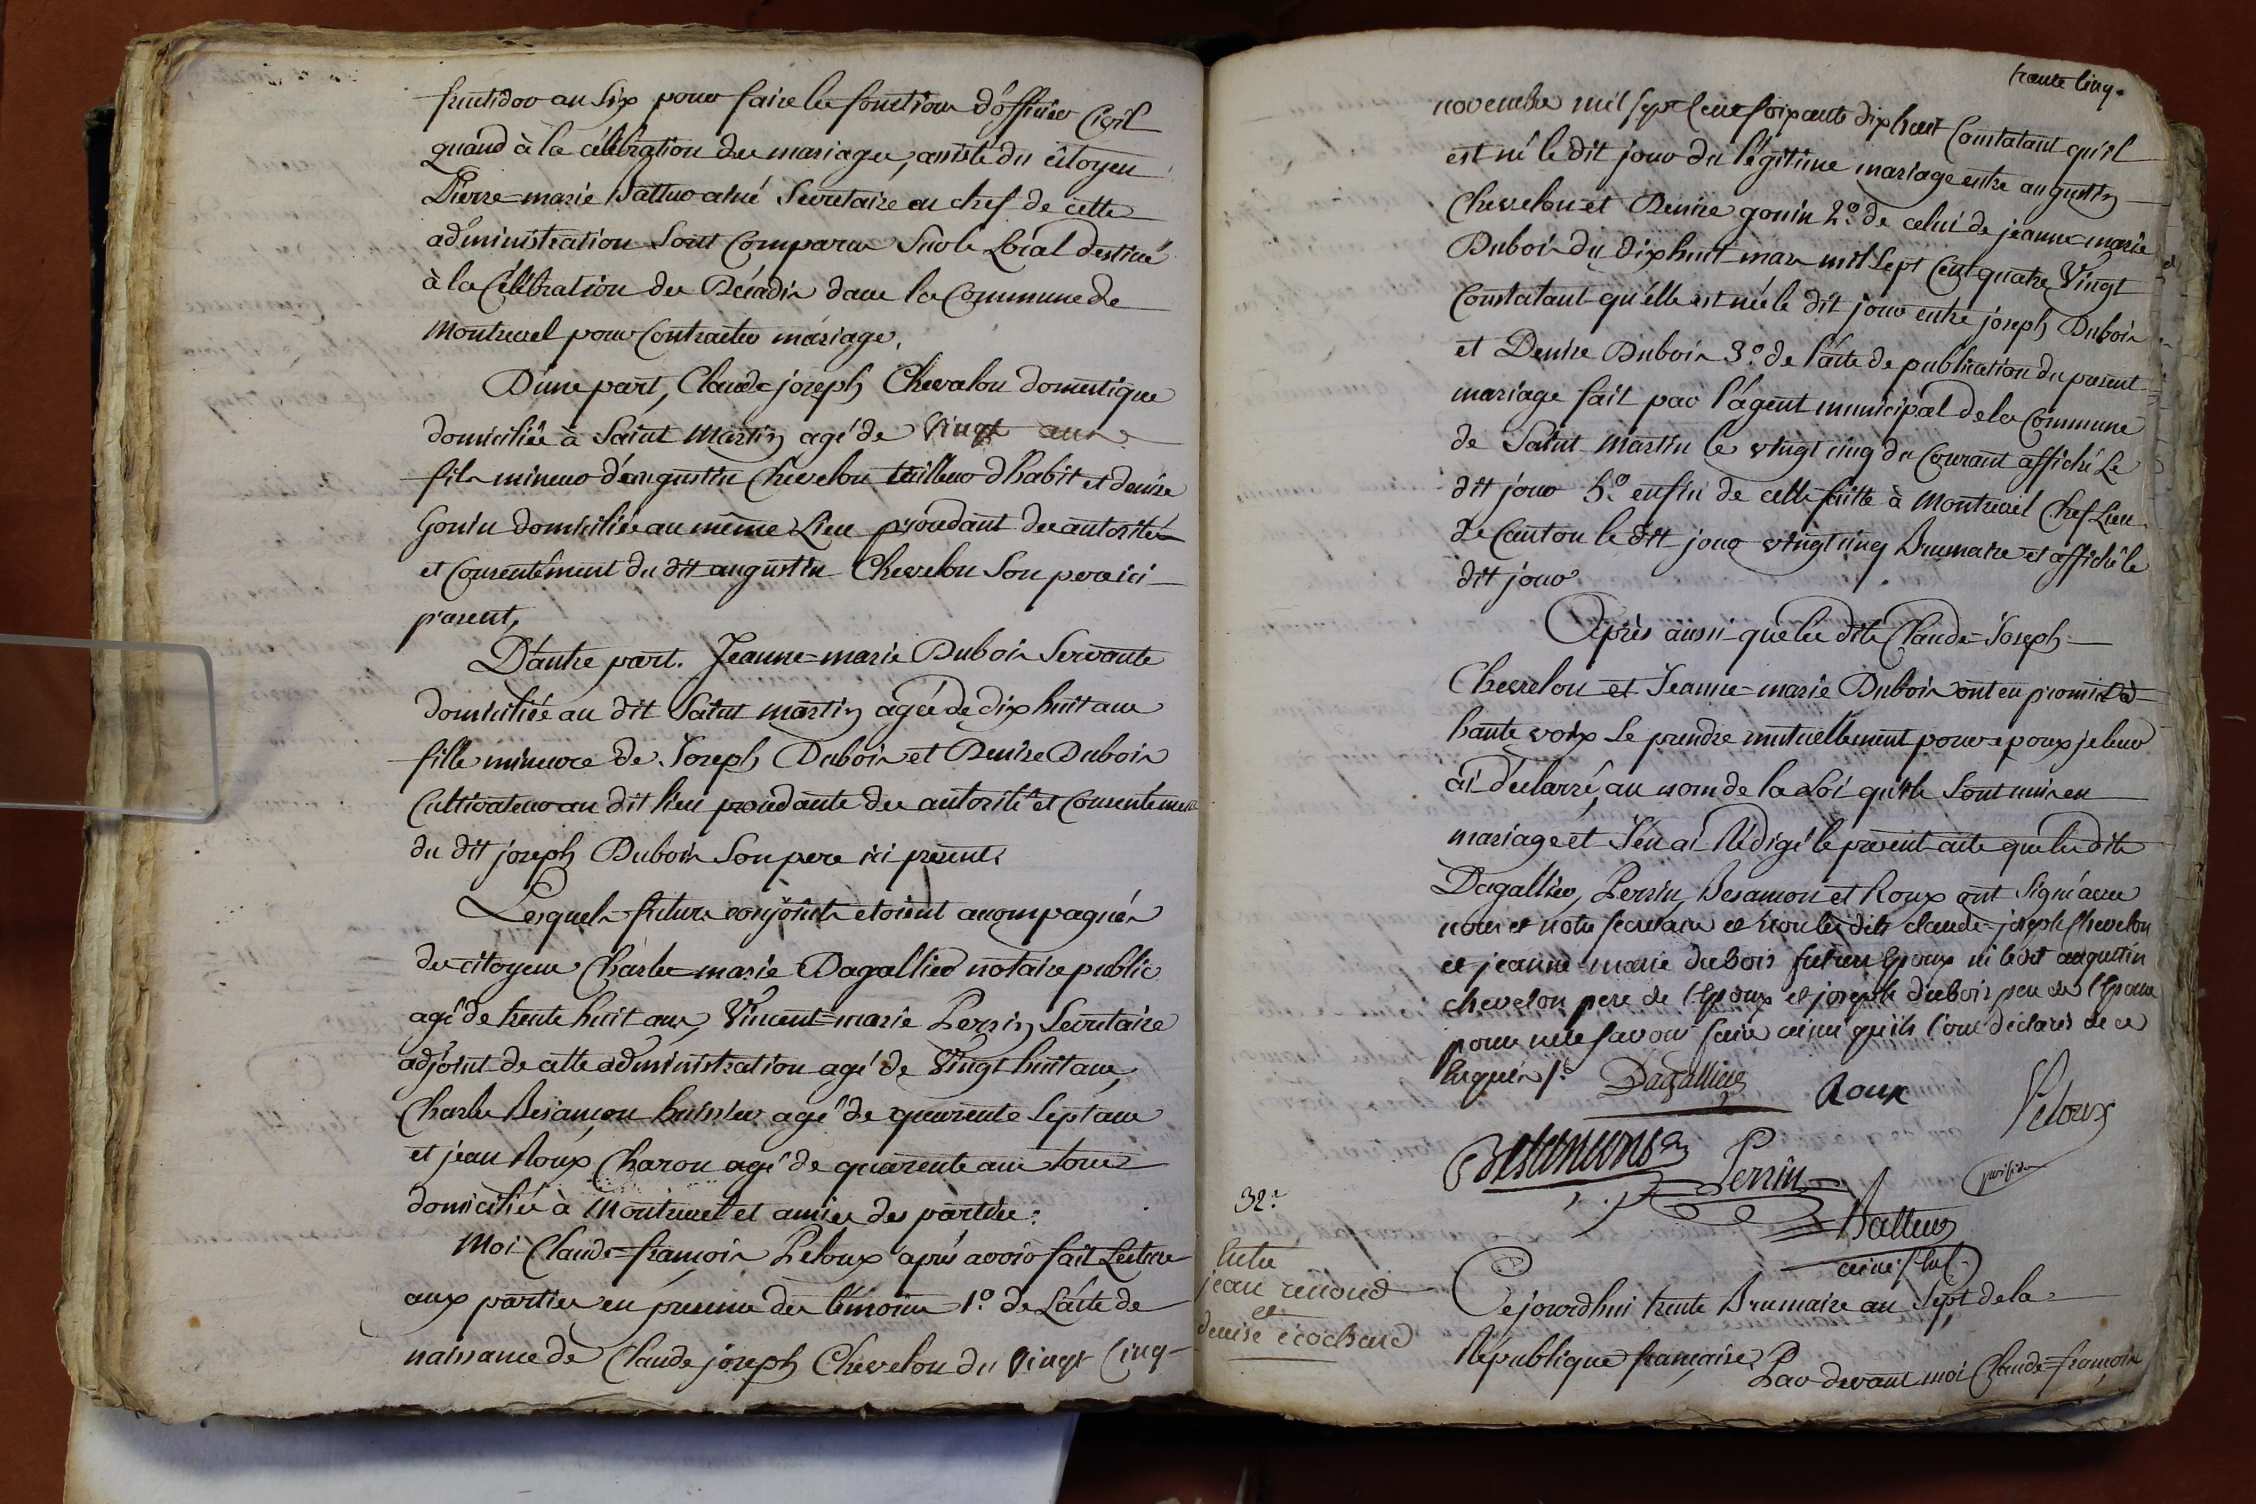 fructidor an Six pour faire les fonctions d'officier Civil
quand à la célébration des mariages, assisté du citoyen
Pierre=marie Battur ainé Secretaire en chef de cette
administration Sont Comparus Sur le Local destiné
à la Célébration des Décadis dans la Commune de
Montrevel pour Contracter mariage.
D'une part, Claude joseph Chevelon domestique
domicilié à Saint Martin agé de Vingt ans
fils mineur d'augustin Chevelon tailleur d'habit et denise
Gonin domiciliés au même Lieu procedant des autorité
et Consentêment du dit augustin Chevelon Son pere ici
présent,
D'autre part. Jeanne=marie Dubois Servante
domiciliée au dit Saint martin agée de dix huit ans
fille mineure de Joseph Dubois et Denise Dubois
Cultivateurs au dit lieu procedante des autorité et Consentement
du dit joseph Dubois Son pere ici présent.
Lesquels futurs conjoints etoient accompagnés
des citoyens Charles=marie Dagallier notaire public
agé de trente huit ans, Vincent=marie Perrin Secretaire
adjoint de cette administration agé de Vingt huit ans,
Charles Besançon huissier agé de quarente Sept ans
et jean Roux Charon agé de quarente ans tous
domiciliés à Montrevel et amies des parties.
Moi Claude=françois Peloux après avoir fait Lecture
aux parties en présence des témoins 1.° de L'acte de
naissance de Claude joseph Chevelon du Vingt Cinq
trente cinq.
novembre mil Sept Cent Soixante dix huit Constatant qu'il
est né le dit jour du légitime mariage entre augustin
Chevelon et Denise gonin 2.° de celui de jeanne=marie
Dubois du dix huit mars mil Sept Cent quatre Vingt
Constatant qu'elle est née le dit jour entre joseph Dubois
et Denise Dubois 3.° de l'acte de publication du present
mariage fait par l'agent municipal de la Commune
de Saint Martin le vingt cinq du Courant affiché Le
dit jour 5.° enfin de celle faitte à Montrevel Chef Lieu
de Canton le dit jour vingt cinq Brumaire et affiché le
dit jour
Après aussi que les dits Claude=Joseph
Chevelon et Jeanne=marie Dubois ont eu promis à
haute voix Se prendre mutuellement pour epoux je leur
ai déclarré, au nom de la Loi qu'ils Sont unis en
mariage et J'en ai Rédigé le present acte que les dits
Dagallier, Perrin, Besancon et Roux ont Signé avec
nous et notre secretaire et non les dits claude=joseph Chevelon
et jeanne=marie dubois futurs Epoux ni le dit augustin
chevelon pere de l'Epoux et joseph dubois pere de l'Epouse
pour ne le savoir faire ainsi qu'ils l'ont déclarés de ce
Enquis /.
Dagallier
Roux
Peloux
Besancons
Perrin
président
Battur
ainé
32.e
Entre
jean renoud
et
denise ecochard
Cejourdhui trente Brumaire an Sept de la
République française, Par devant moi Claude=françois